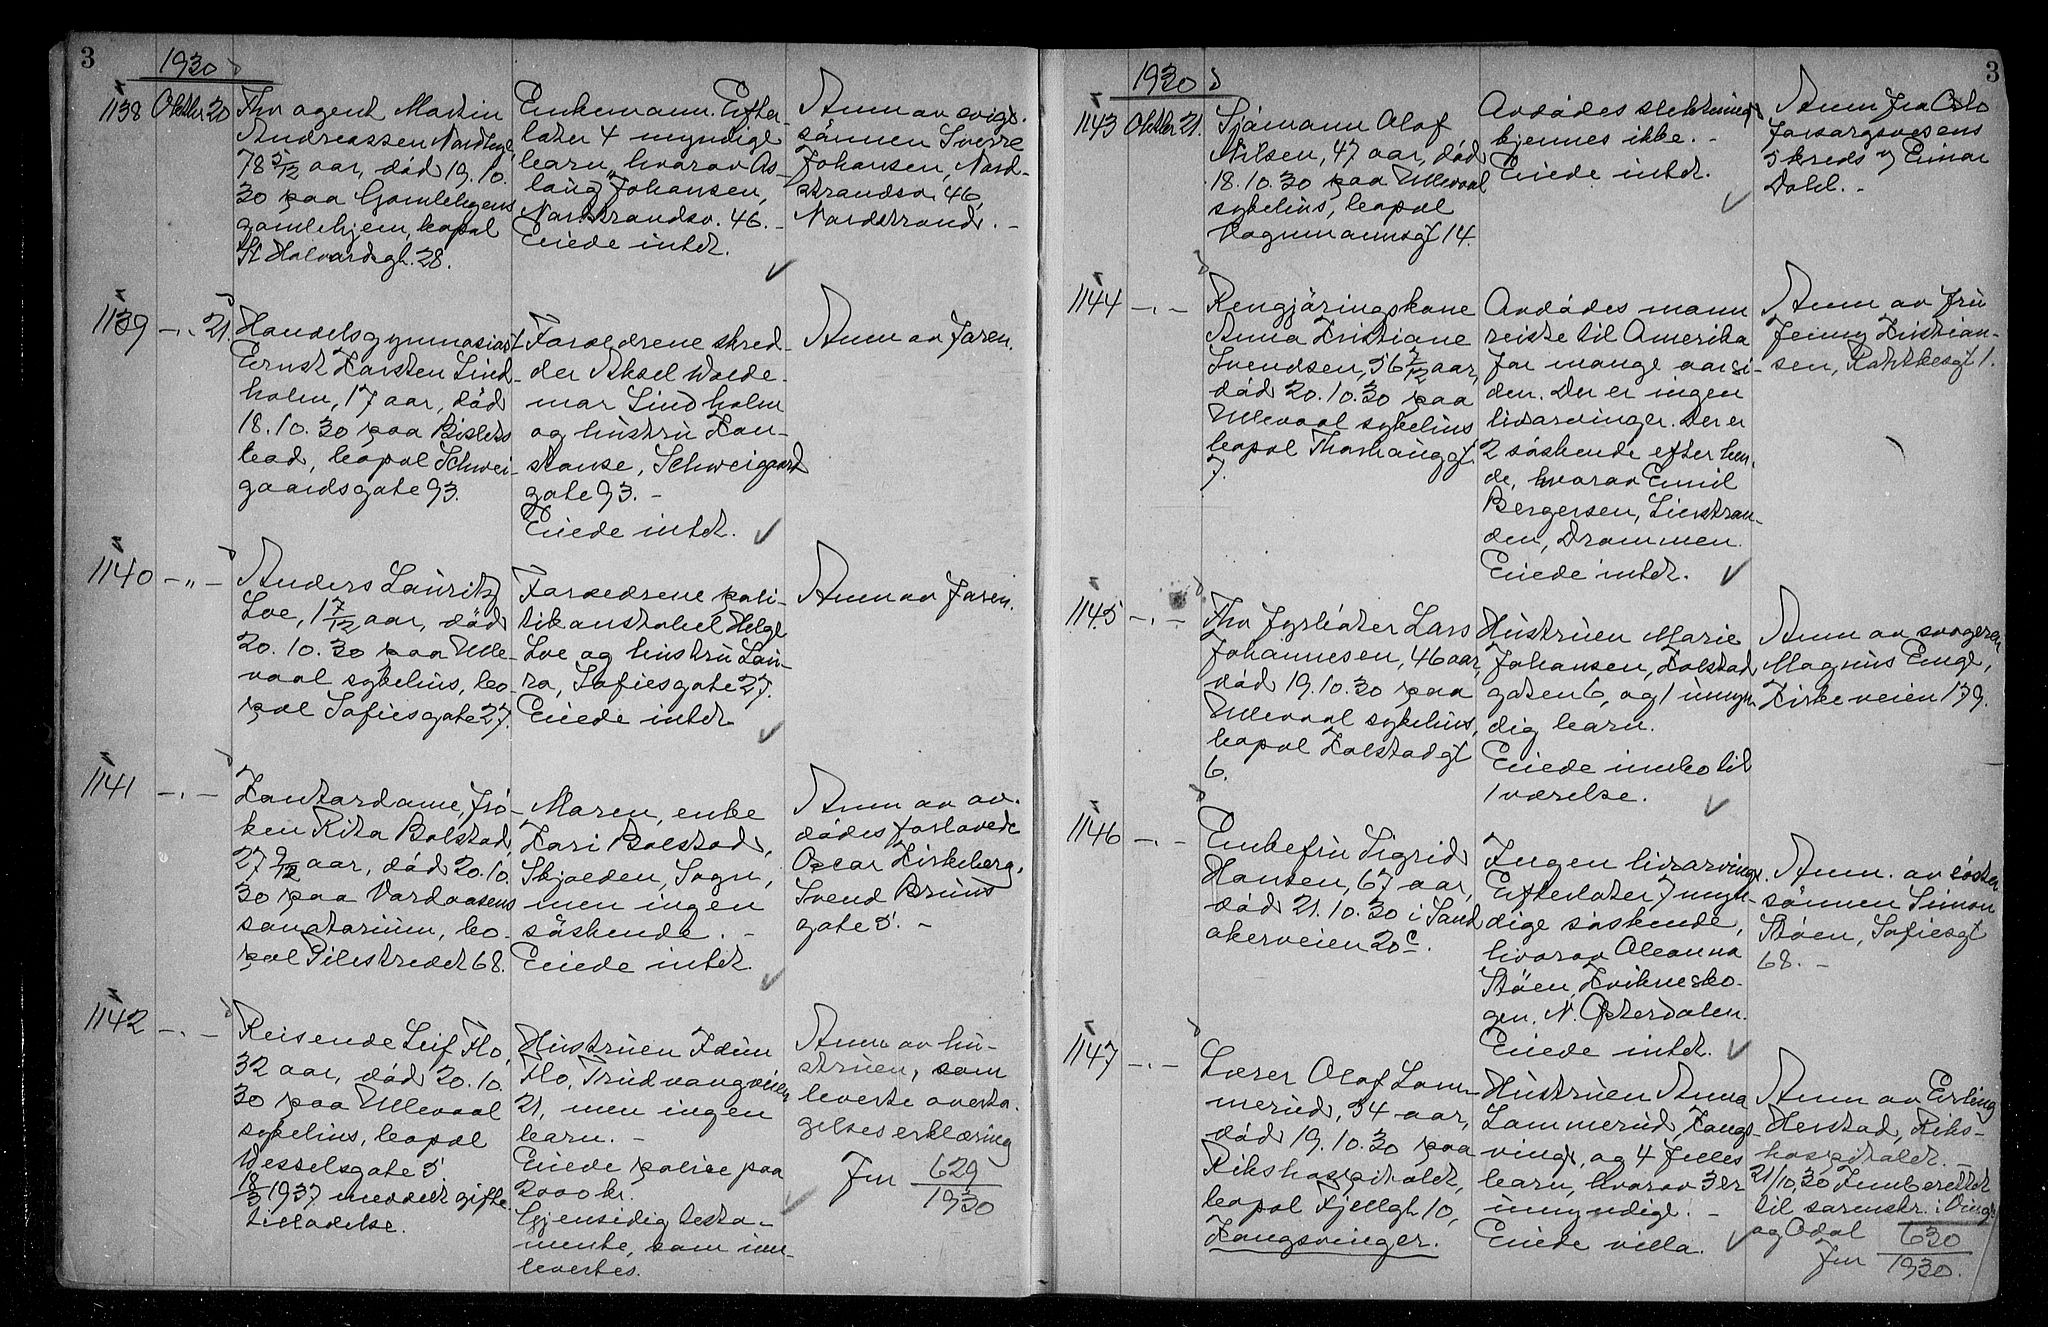 3
1930
1138 Oktbr 20
Fhv agent Martin
Andreassen Nordhagl,
78 5/12 aar, död 19.10.
30 paa Gamlebyens
gamlehjem, bopæl
St Halvardsgt. 28.
Enkemann. Efter-
later 4 myndige
barn, hvorav As-
laug Johansen,
Nordstrandsv. 46. -
Eiede intet.
Anm av svigt.
sönnen Sverre
Johansen, Nord-
strandsv. 46,
Nordstrand. -
1139 -"- 21.
Handelsgymnasiast
Ernst Karsten Lind-
holm, 17 aar, död
18.10.30 paa Bislets
bad, bopæl Schwei-
gaardsgate 93.
Forældrene skred-
der Aksel Walde-
mar Lindholm
og hustru Kon-
stanse, Schweigaard
gate 93. -
Eiede intet.
Anm av faren.
1140 -"-
Anders Lauritz
Loe, 1 7/12 aar, död
20.10.30 paa Ulle-
vaal sykehus, bo-
pæl Sofiesgate 27.
Forældrene poli-
tikonstabel Helge
Loe og hustru Lau-
ra, Sofiesgate 27.
Eiede intet
Anm av faren.
1141 -"-
Kontordame, frö-
ken Rita Bolstad,
27 9/12 aar, död 20.10.
30 paa Vardaasens
sanatorium, bo-
pæl Pilestredet 68.
Moren, enke
Kari Bolstad,
Skjolden, Sogn,
men ingen
söskende. -
Eiede intet.
Anm av av-
dödes forlovede
Oscar Kirkeberg,
Svend Bruns
gate 5. -
1142 -"-
Reisende Leif Flo,
32 aar, död 20.10.
30 paa Ullevaal
sykehus, bopæl
Wesselsgate 5
18/3 1937 meddelt gifte
tilladelse.
Hustruen Idun
Flo, Trudvangveien
21, men ingen
barn. -
Eiede police paa
2000 kr.
Gjensidig testa-
mente, som inn-
levertes.
Anm av hu-
struen, som
leverte overta-
gelseserklæring
Jnr 629
1930
3
1930
1143 Oktbr 21.
Sjömann Olof
Nilsen, 47 aar, död
18.10.30 paa Ullevaal
sykehus, bopæl
Vognmannsgt 14.
Avdödes slektninger
kjennes ikke. -
Eiede intet.
Anm fra Oslo
forsorgsvesens
5 kreds v Einar
Dahl. -
1144 -"-
Rengjöringskone
Anna Kristiane
Svendsen, 56 7/12 aar,
död 20.10.30 paa
Ullevaal sykehus
bopæl Thorhauggt
7.
Avdödes mann
reiste til Amerika
for mange aar si-
den. Der er ingen
livsarvinger. Der er
2 söskende efter hen-
de, hvorav Emil
Bergersen, Lierstran-
den, Drammen.
Eiede intet.
Anm av fru
Jenny Kristian-
sen, Rahbksgt 1.
1145 -"-
Fhv fyrböter Lars
Johannesen, 46 aar,
död 19.10.30 paa
Ullevaal sykehus,
bopæl Kolstadgt
6.
Hustruen Marie
Johansen, Kolstad
gaten 6, og 1 umyn-
dig barn.
Eiede innbo til
1 værelse.
Anm av svogeren
Magnus Enge,
Kirkeveien 179.
1146 -"-
Enkefru Sigrid
Hansen, 67 aar,
död 21.10.30 i Sand
akerveien 20c.
Ingen livsarvinger.
Efterlater 7 myn-
dige söskende,
hvorav Oleanna
Stöen, Kviknesko-
gen, N. Österdalen.
Eiede intet.
Anm. av söster-
sönnen Simon
Stöen, Sofiesgt
68. -
1147 -"-
Lærer Olof Lom-
merud, 34 aar,
död 19.10.30 paa
Rikshospitalet,
bopæl Fjellgt 10,
Kongsvinger.
Hustruen Anna
Lommerud, Kongs-
vinger, og 4 felles
barn, hvorav 3 er
umyndige. -
Eiede villa.
Anm av Erling
Herstad, Riks-
hospitalet. -
21/10.30 Innberettet
til sorenskr. i Vinger
og Odal
Jnr 630
1930.